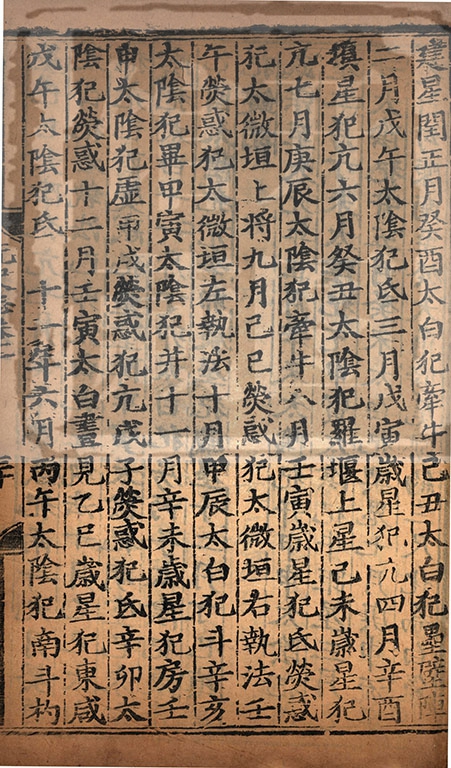 建星閏正月癸酉太白犯牽牛己丑太白犯壘壁陣
二月戊午太陰犯氐三月戊寅歲星犯亢四月辛酉
填星犯亢六月癸丑太陰犯羅堰上星己未歲星犯
亢七月庚辰太陰犯牽牛八月壬寅歲星犯氐熒惑
犯太微垣上將九月己巳熒惑犯太微垣右執法壬
午熒惑犯太微垣左執法十月甲辰太白犯斗辛亥
太陰犯畢甲寅太陰犯井十一月辛未歲星犯房壬
申太陰犯虛甲戌熒惑犯亢戊子熒惑犯氐辛卯太
陰犯熒惑十二月壬寅太白晝見乙巳歲星犯東咸
戊午太陰犯氐 十一年六月丙午太陰犯南斗杓